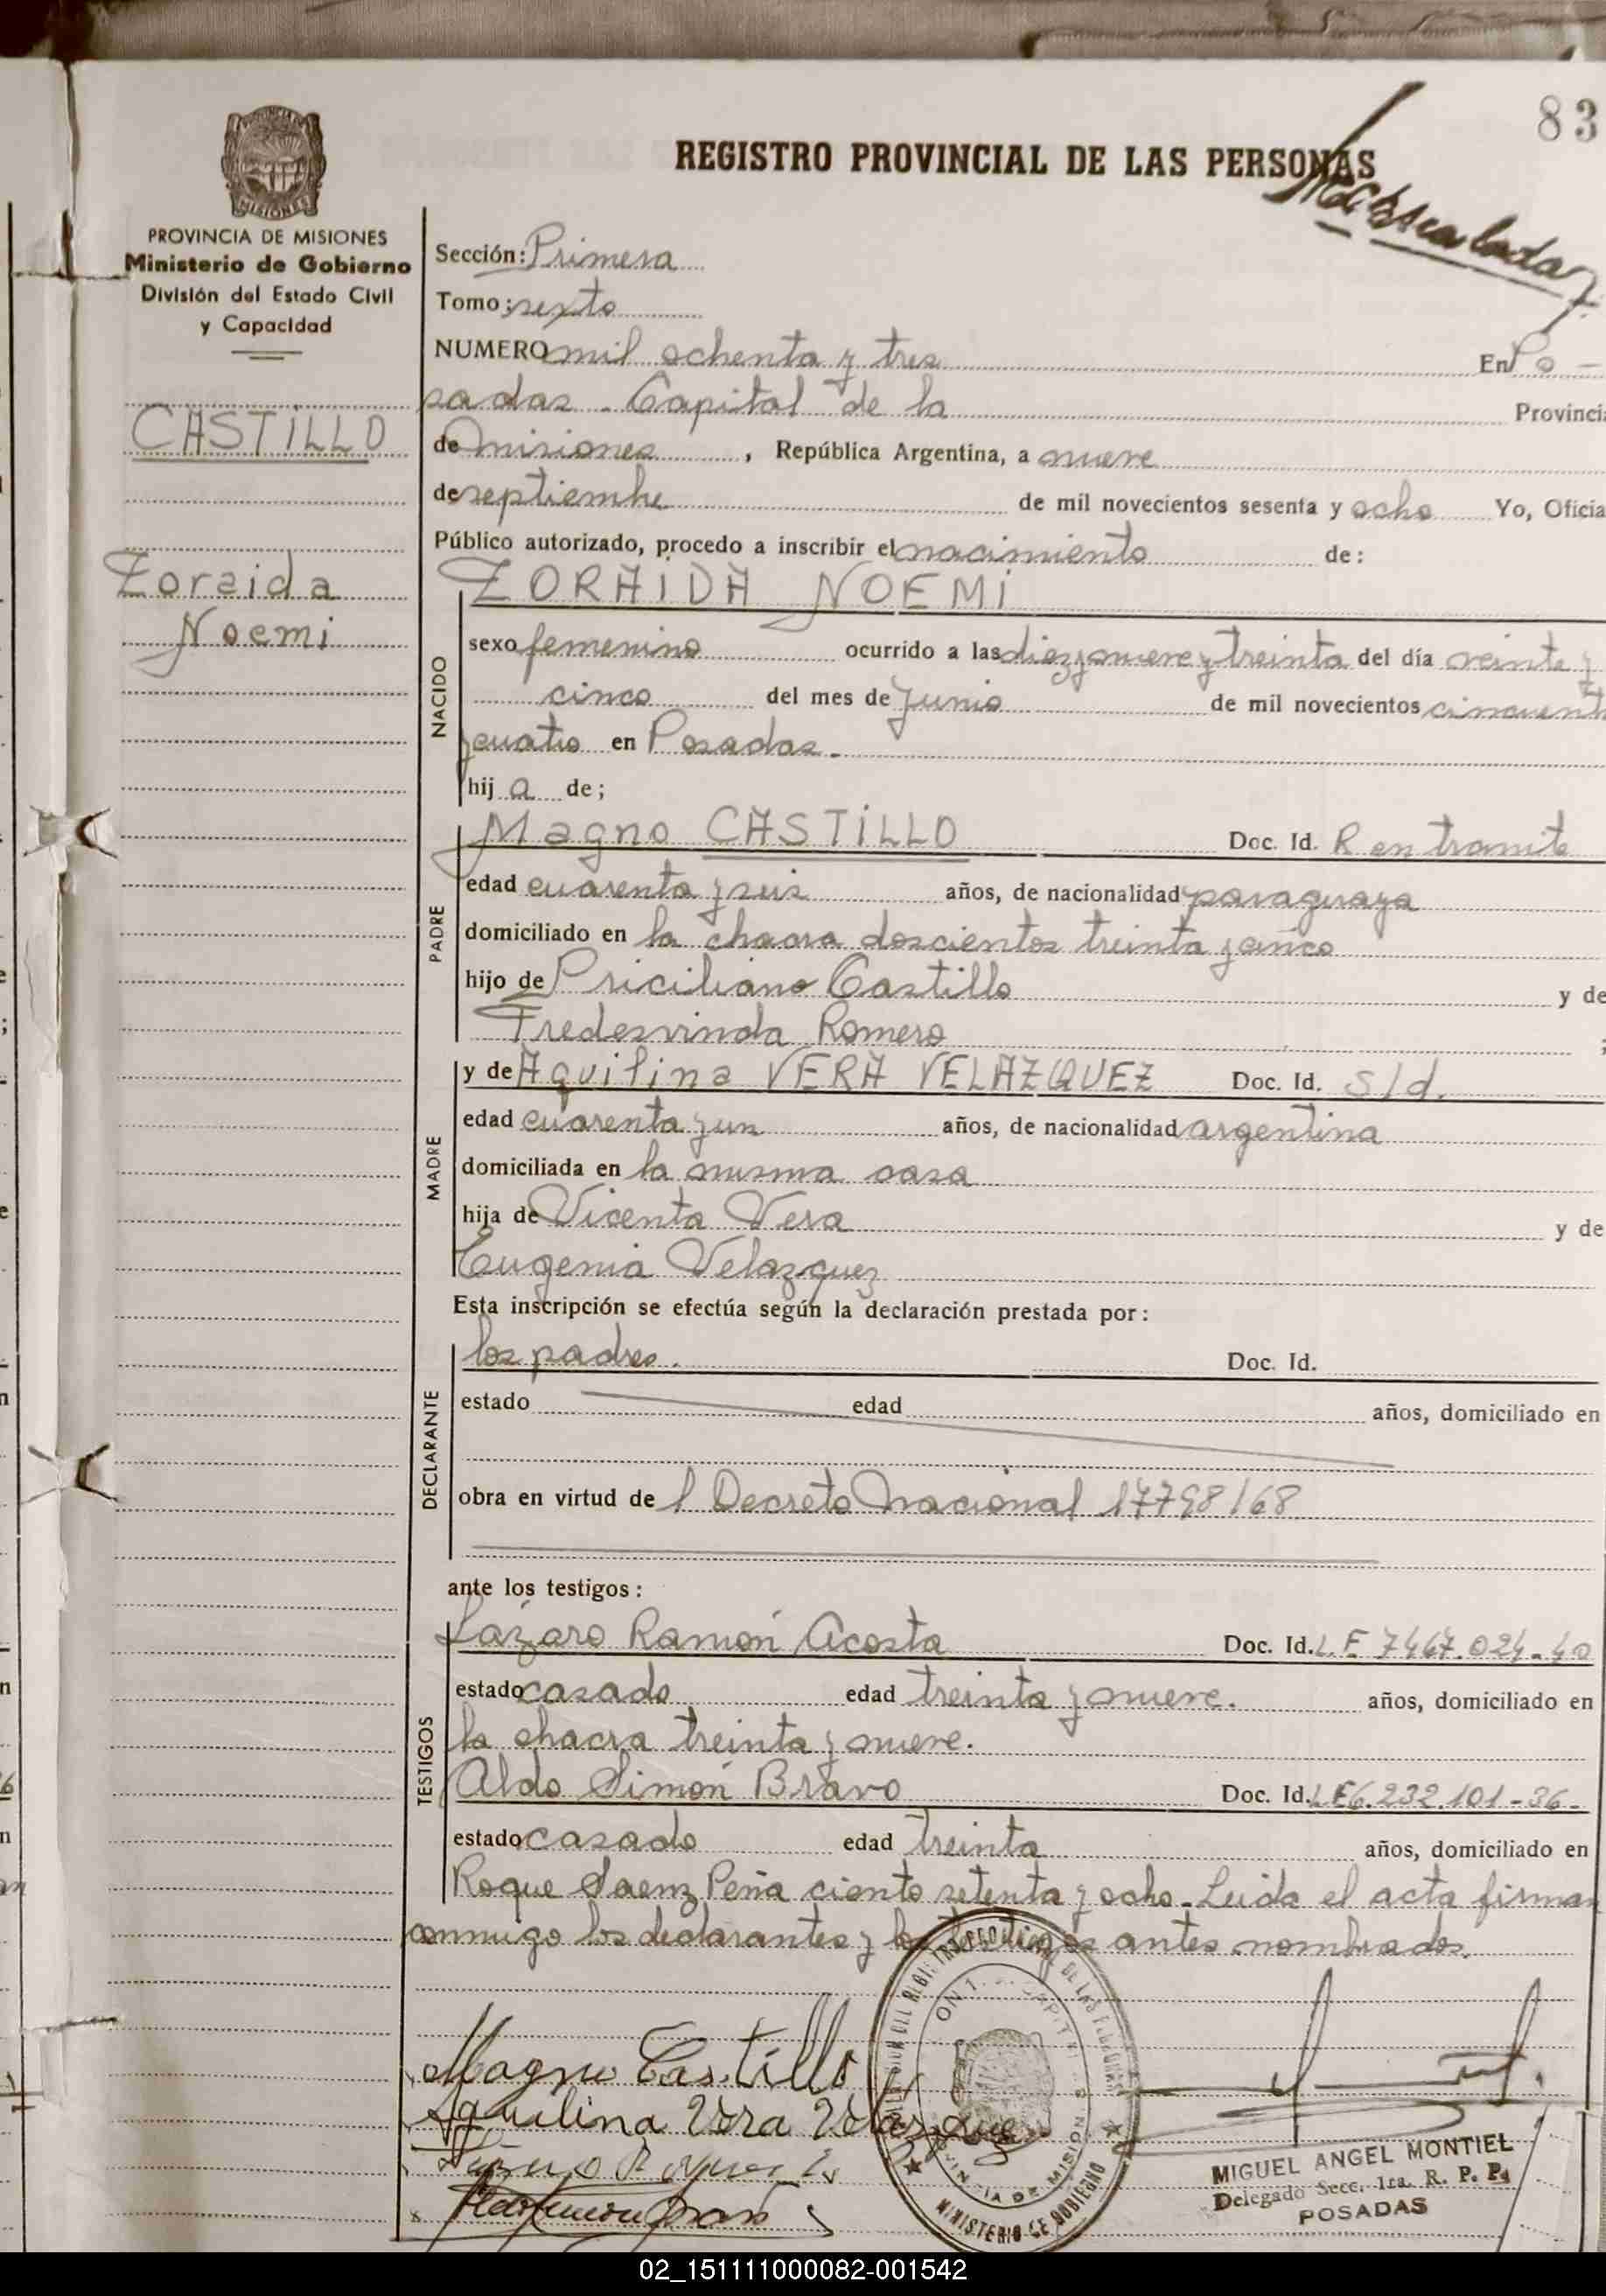 83
REGISTRO PROVINCIAL DE LAS PERSONAS
PROVINCIA DE
MISIONES
PROVINCIA DE MISIONES
Ministerio de Gobierno
División del Estado Civil
y Capacidad
CASTILLO
Zoraida
Noemi
Sección: Primera
Tomo: sexto
NUMERO mil ochenta y tres En Po -
sadas. Capital de la Provincia
de Misiones, República Argentina, a nueve
de septiembre de mil novecientos sesenta y ocho Yo, Oficia
Público autorizado, procedo a inscribir el nacimiento de:
ZORAIDA NOEMI
NACIDO
sexo femenino ocurrido a las diez y nueve y treinta del día veinte y
cinco del mes de Junio de mil novecientos cincuent
y cuatro en Posadas.
hij a de;
PADRE
Magno CASTILLO Doc. Id. R en tramite
edad cuarenta y seis años, de nacionalidad paraguaya
domiciliado en la chacra doscientos treinta y cinco
hijo de Priciliano Castillo y de
Fredesvinda Romero ;
MADRE
y de Aquilina VERA VELAZQUEZ Doc. Id. s/d.
edad cuarenta y un años, de nacionalidad argentina
domiciliada en la misma casa
hija de Vicenta Vera y de
Eugenia Velazquez
Esta inscripción se efectúa según la declaración prestada por:
DECLARANTE
los padres. Doc. Id.
estado edad años, domiciliado en
obra en virtud de l Decreto Nacional 17798/68
ante los testigos:
TESTIGOS
Lázaro Ramón Acosta Doc. Id. L E 7467.024-40
estado casado edad treinta y nueve. años, domiciliado en
la chacra treinta y nueve.
Aldo Simón Bravo Doc. Id. L E 6.232.101-36-
estado casado edad treinta años, domiciliado en
Roque Saenz Peña ciento setenta y ocho. Leida el acta firman
conmigo los declarantes y los testigos antes nombrados.
Magno Castillo
Aquilina Vera Velazquez
MINISTERIO DE GOBIERNO
MIGUEL ANGEL MONTIEL
Delegado Secc. 1ra. R. P. P.
POSADAS
02_151111000082-001542